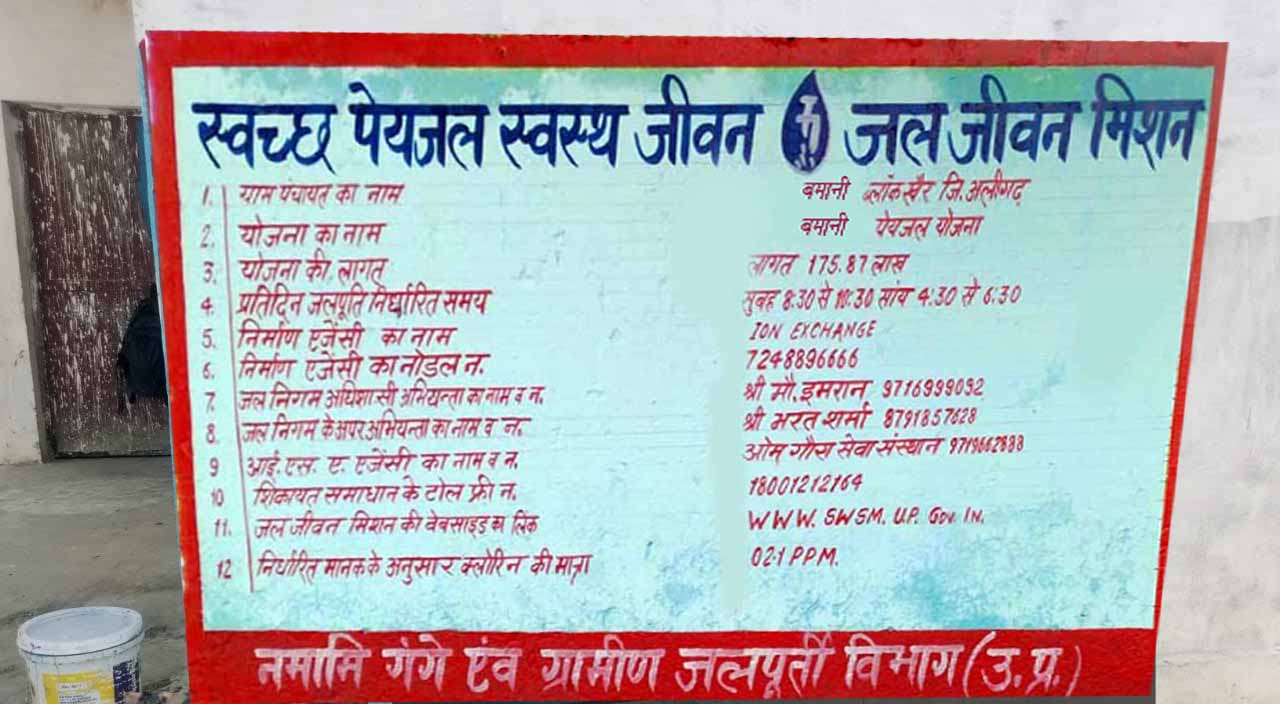 स्वच्छ पेयजल स्वस्थ जीवन जल जीवन मिशन
1. ग्राम पंचायत का नाम बमानी ब्लॉक खैर जि. अलीगढ़
2. योजना का नाम बमानी पेयजल योजना
3. योजना की लागत लागत 175.87 लाख
4. प्रतिदिन जलपूर्ति निर्धारित समय सुबह 8:30 से 10:30 सांय 4:30 से 6:30
5. निर्माण एजेंसी का नाम ION EXCHANGE
6. निर्माण एजेंसी का नोडल न. 7248896666
7. जल निगम अधिशासी अभियन्ता का नाम व न. श्री मौ. इमरान 9716999092
8. जल निगम के अपर अभियन्ता का नाम व न. श्री भरत शर्मा 8791857628
9 आई. एस. ए. एजेंसी का नाम व न. ओम गौरा सेवा संस्थान 9719662888
10 शिकायत समाधान के टोल फ्री न. 18001212164
11. जल जीवन मिशन की वेबसाइड का लिंक WWW. SWSM. U.P. Gov. In.
12 निर्धारित मानक के अनुसार क्लोरिन की मात्रा 02.1 PPM.
नमामि गंगे एंव ग्रामीण जलपूर्ती विभाग (उ.प्र.)